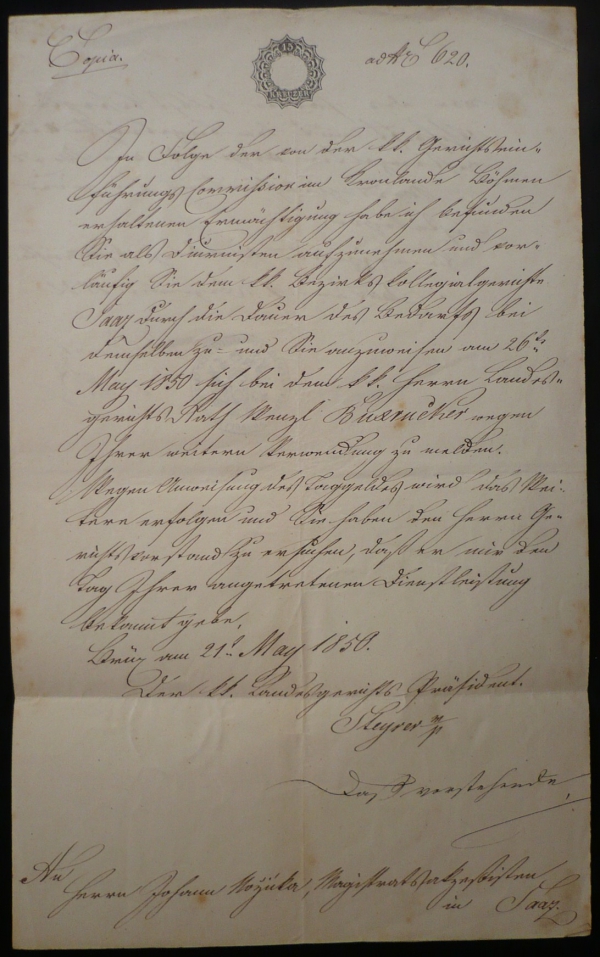 Copia.
15
KREUZER
ad N. E. 620.
In Folge der von der k.k. Gerichtsein-
führungs Commission im Kronlande Böhmen
erhaltenen Ermächtigung habe ich befunden
Sie als Diurnisten aufzunehmen und vor-
läufig Sie dem k.k. Bezirks Kollegialgerichte
Saaz durch die Dauer des Bedarfs bei
demselben zu- und Sie anzuweisen am 26t
May 1850 sich bei dem k.k. Herrn Landes-
gerichts Rath Wenzl wegen
Ihrer weitern Verwendung zu melden.
Wegen Anweisung des Taggeldes wird das Wei-
tere erfolgen und Sie haben den Herrn Ge-
richtsvorstand zu ersuchen, daß er mir den
Tag Ihrer angetretenen Dienstleistung
bekannt gebe.
Brüx am 21t May 1850.
Der k.k. Landesgerichts Präsident.
Steyrer m/p
Daß vorstehende
An
Herrn Johann Magistratsakzessisten
in Saaz.